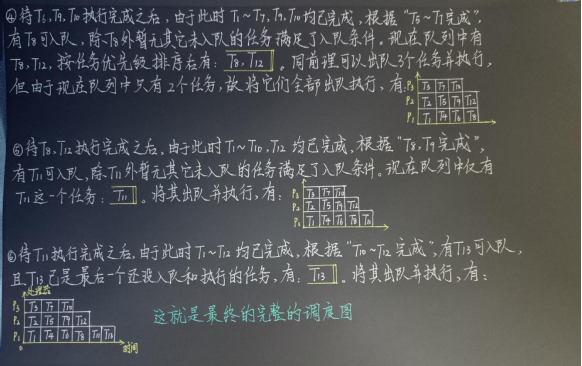 ④待T6,T9,T10执行完成之后,由于此时T1~T7,T9,T10均已完成,根据“T5~T7完成”,
有T8可入队,除T8外暂无其它未入队的任务满足了入队条件。现在队列中有
T8,T12,按任务优先级排序右有: T8,T12 。同前理可以出队3个任务并执行,
但由于现在队列中只有2个任务,故将它们全部出队执行,有:
P3 T3 T7 T10
P2 T2 T5 T9 T12
P1 T1 T4 T6 T8
⑤待T8,T12执行完成之后,由于此时T1~T10,T12均已完成,根据“T8,T9完成”,
有T11可入队,除T11外暂无其它未入队的任务满足了入队条件。现在队列中仅有
T11这一个任务: T11 。将其出队并执行,有:
P3 T3 T7 T10
P2 T2 T5 T9 T12
P1 T1 T4 T6 T8 T11
⑥待T11执行完成之后,由于此时T1~T12均已完成,根据“T10~T12完成”,有T13可入队,
且T13已是最后一个还没入队和执行的任务,有: T13 。将其出队并执行,有:
处理器
P3 T3 T7 T10
P2 T2 T5 T9 T12
P1 T1 T4 T6 T8 T11 T13
0 时间
这就是最终的完整的调度图